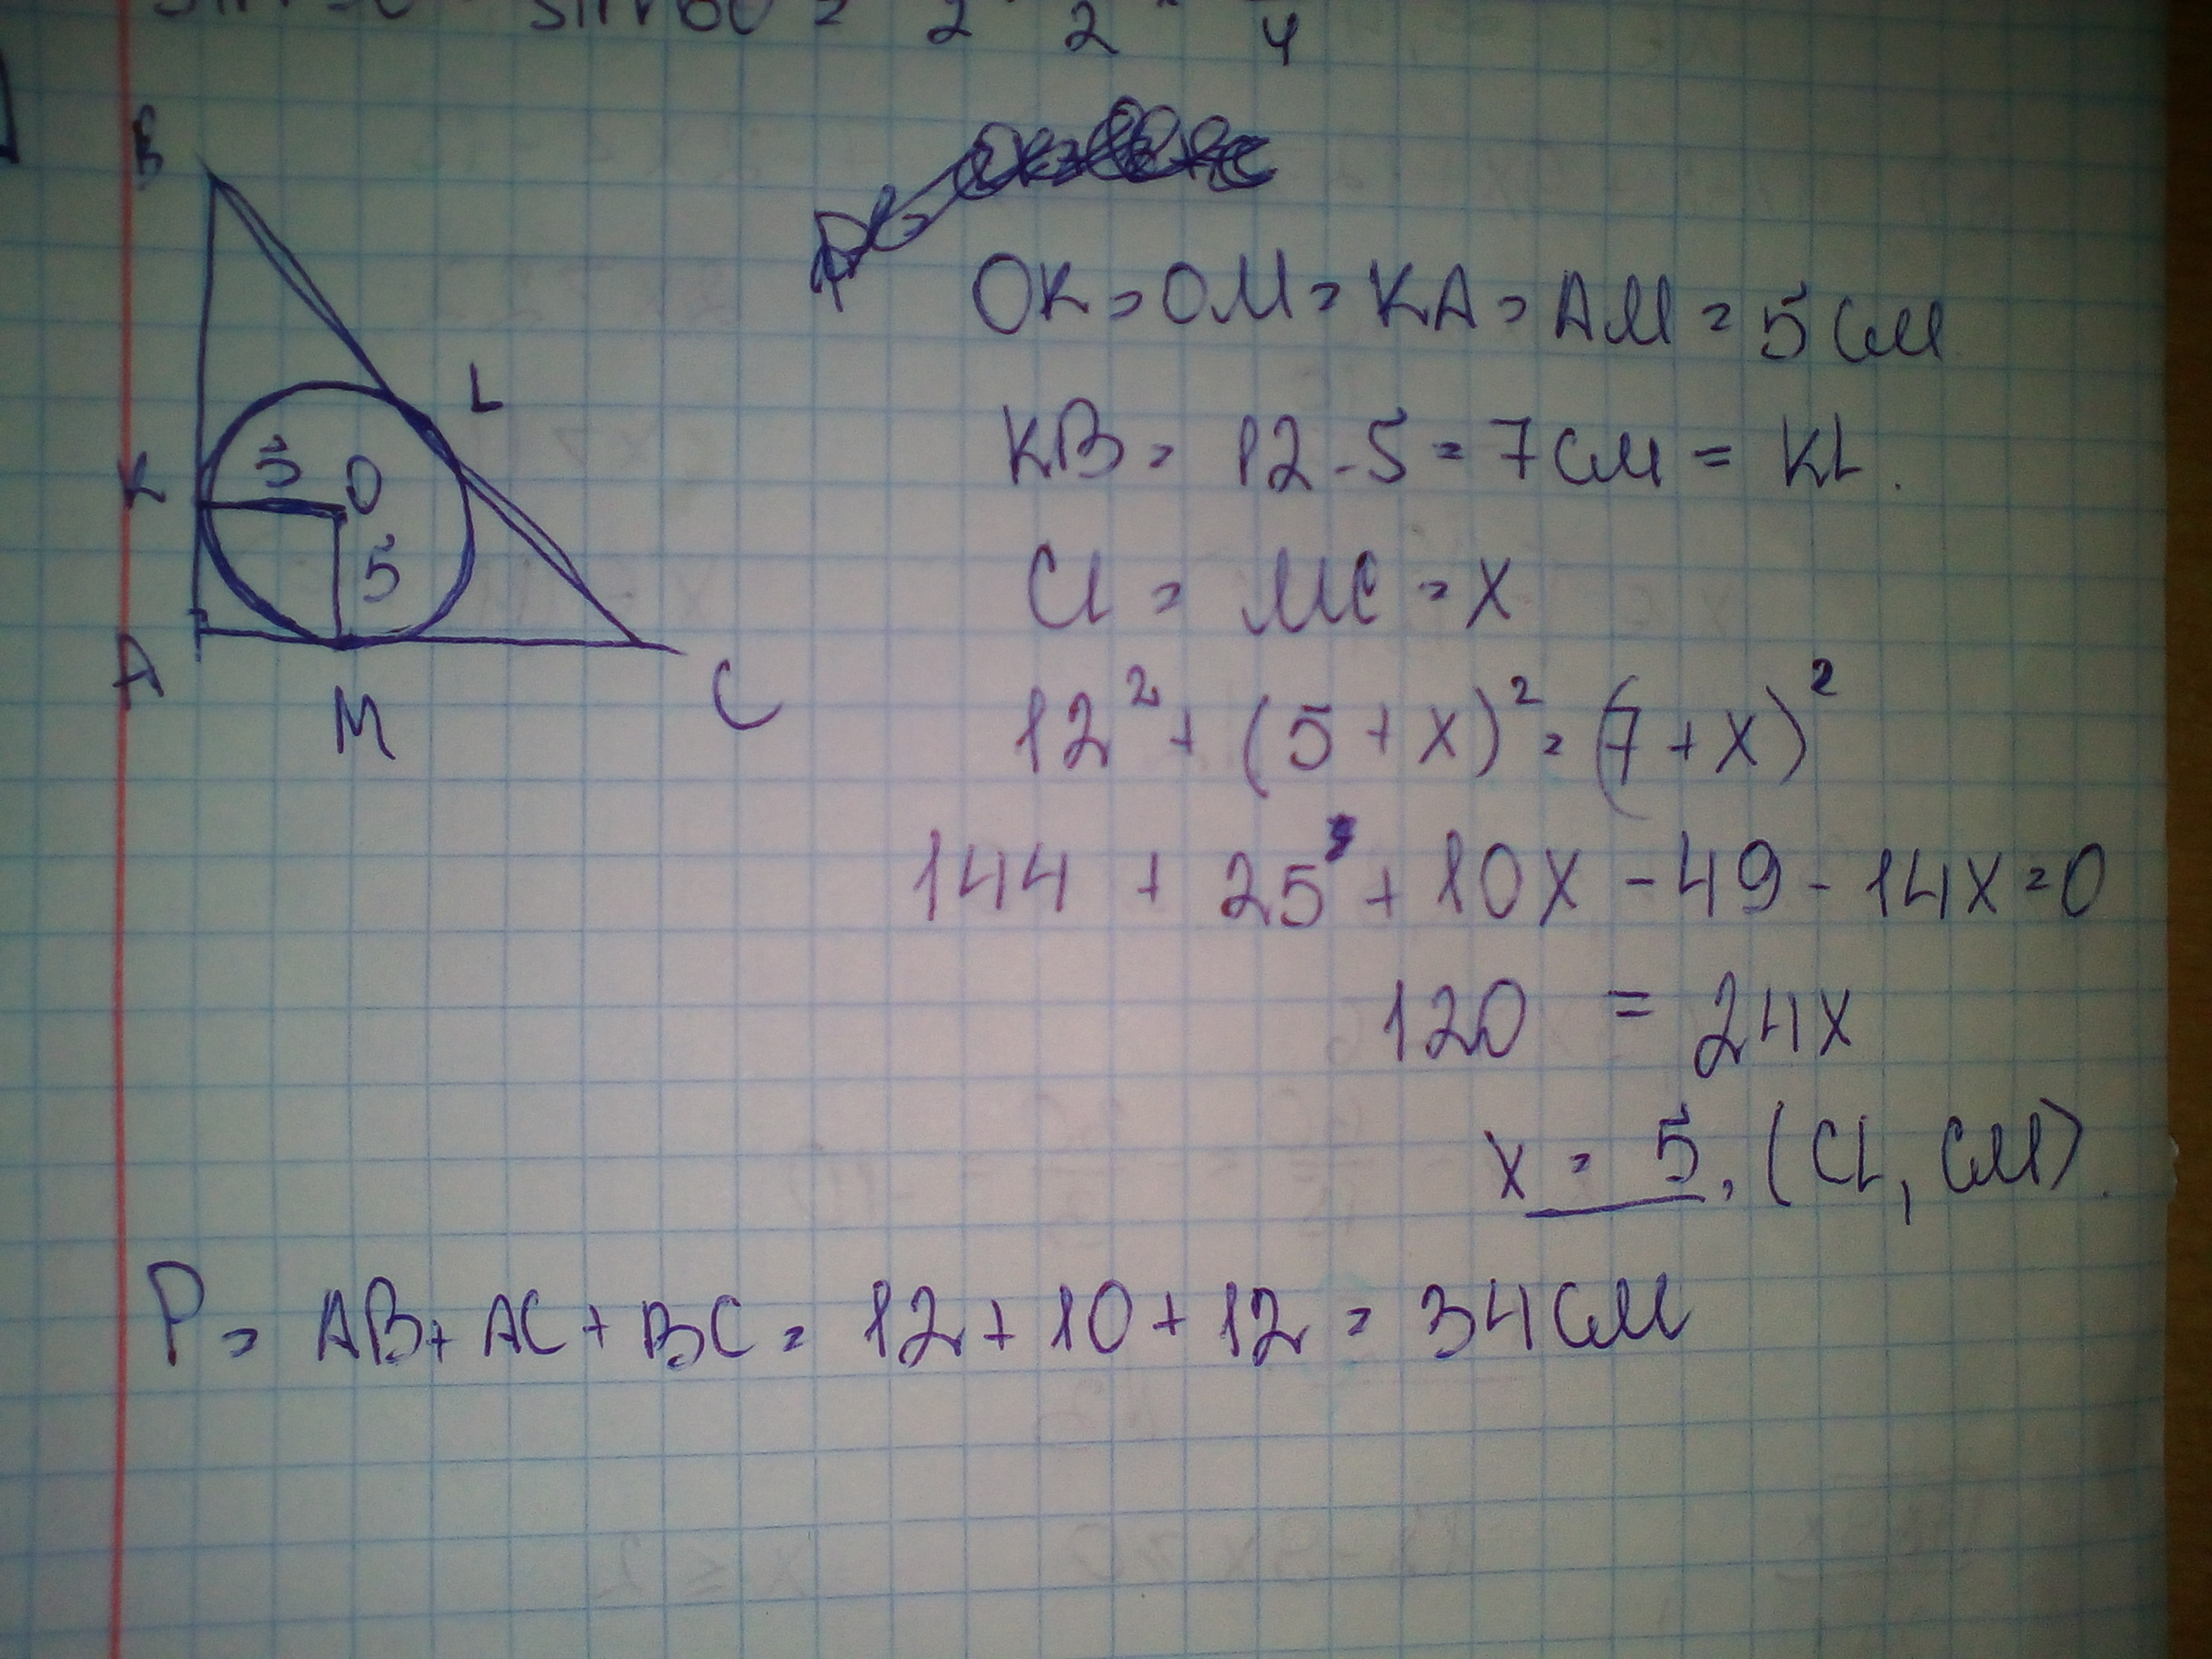 2 2 4
B
L
K 5 O
5
A
M
C
OK = OM = KA = AM = 5 см
KB = 12 - 5 = 7 см = KL.
CL = MC = x
12² + (5 + x)² = (7 + x)²
144 + 25 + 10x - 49 - 14x = 0
120 = 24x
x = 5, (CL, CM).
P = AB + AC + BC = 12 + 10 + 12 = 34 см